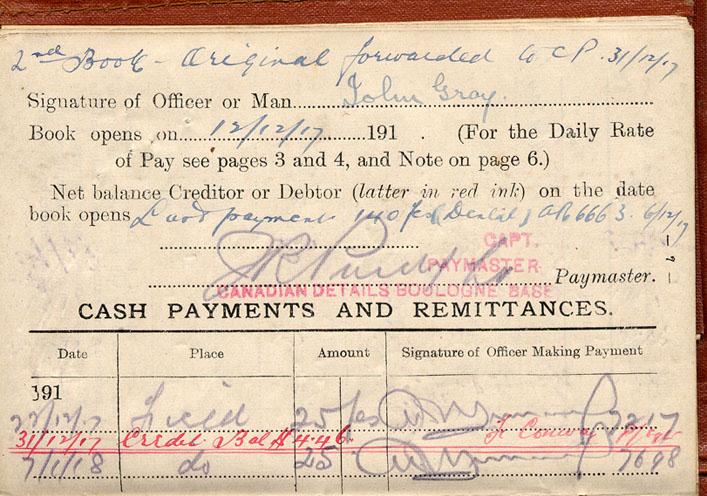 2nd Book - Original forwarded to CP. 31/12/17
Signature of Officer or Man John Gray.
Book opens on 12/12/17 191 . (For the Daily Rate
of Pay see pages 3 and 4, and Note on page 6.)
Net balance Creditor or Debtor (latter in red ink) on the date
book opens Last payment 140 fcs (Dental) AR6663. 6/12/17
CAPT.
PAYMASTER
Paymaster.
CANADIAN DETAILS BOULOGNE BASE
CASH PAYMENTS AND REMITTANCES.
Date Place Amount Signature of Officer Making Payment
191
22/12/17 Field 25 fcs 7217
31/12/17 Credit Bal $ 4.46 Conway
7/1/18 do 25 7698